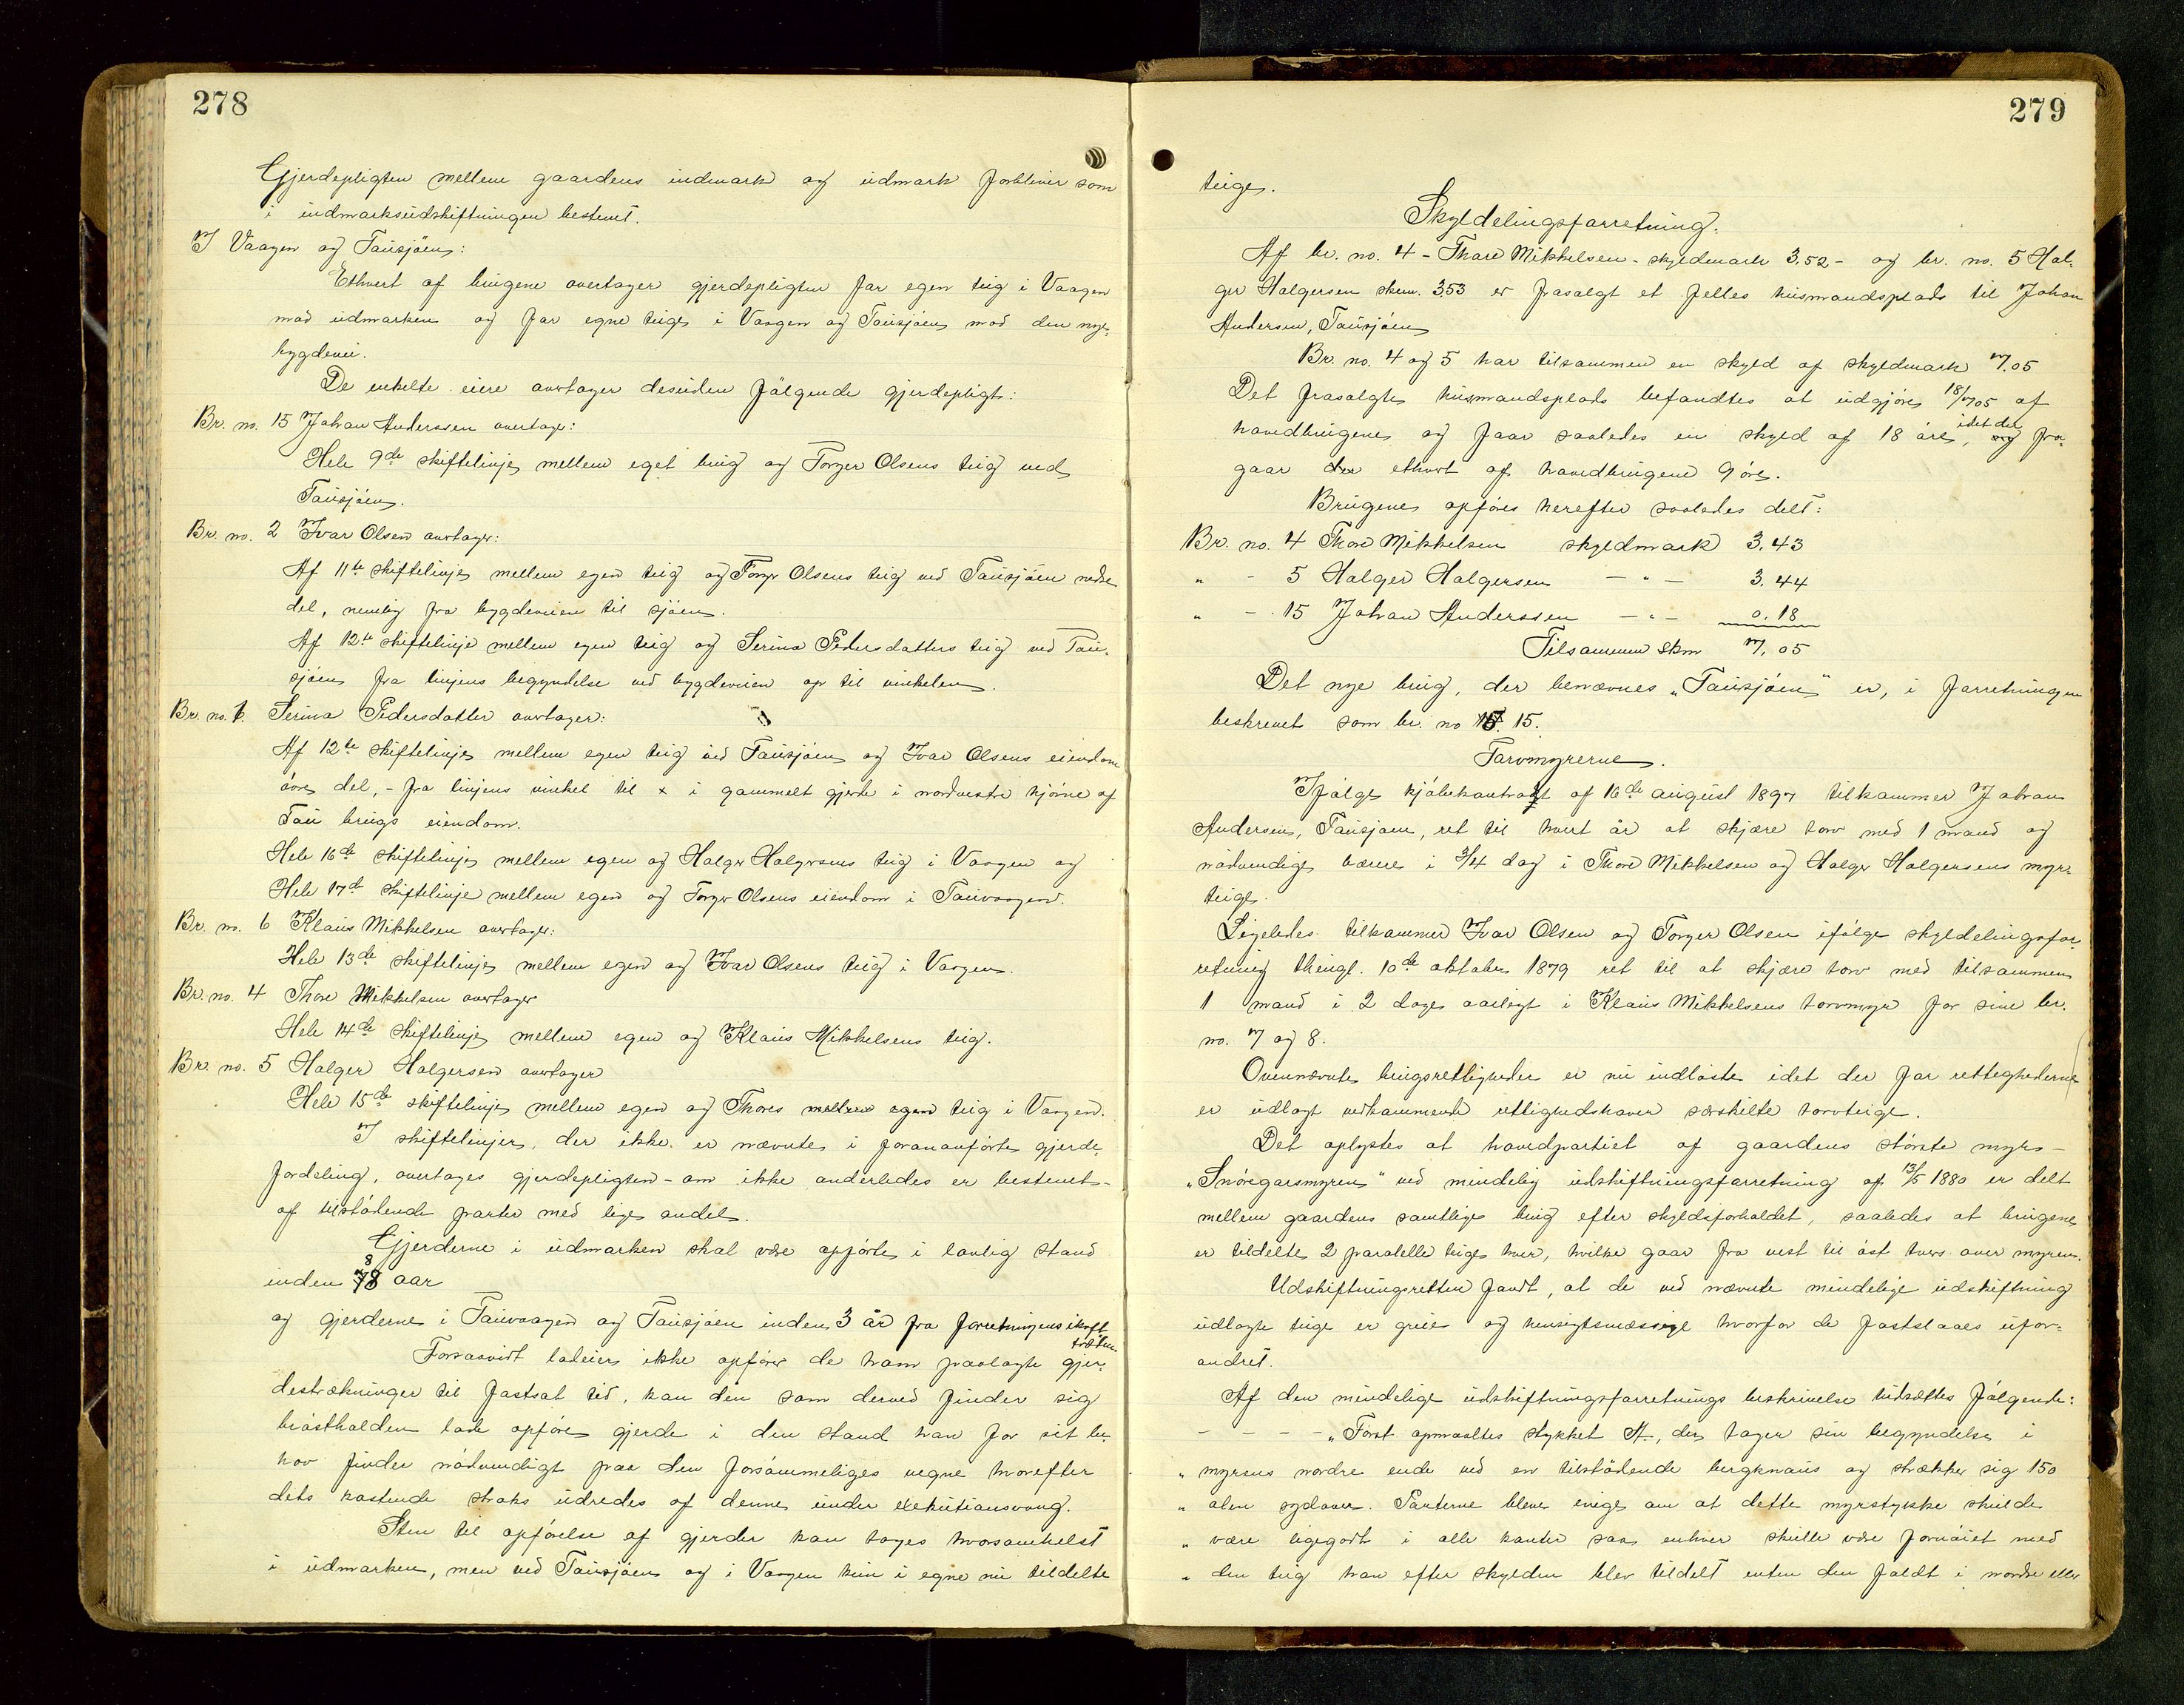 278
Gjerdepligten mellem gaardens indmark og udmark forbliver som
i indmarksudskiftningen bestemt.
I Vaagen og Tausjøen:
Ethvert af brugene overtager gjerdepligten for egen teig i Vaagen
mod udmarken og for egne teige i Vaagen og Tausjøen mod den nye
bygdevei.
De enkelte eiere overtager desuden følgende gjerdepligt:
Br. no. 15 Johan Anderssen overtager:
Hele 9de skiftelinje mellem eget brug og Torger Olsens teig ved
Tausjøen.
Br. no. 2 Ivar Olsen overtager:
Af 11te skiftelinje mellem egen teig og Torger Olsens teig ved Tausjøen nedre
del, nemlig fra bygdeveien til sjøen.
Af 12te skiftelinje mellem egen teig og Serina Pedersdatters teig ved Tau-
sjøen fra linjens begyndelse ved bygdeveien op til vinkelen.
Br. no. 1. Serina Pedersdatter overtager:
Af 12te skiftelinje mellem egen teig ved Tausjøen og Ivar Olsens eiendom
øvre del, - fra linjens vinkel til x i gammelt gjerde i nordvestre hjørne af
Tau brugs eiendom.
Hele 16de skiftelinje mellem egen og Holger Holgersens teig i Vaagen og
Hele 17de skiftelinje mellem egen og Torger Olsens eiendom i Tauvaagen.
Br. no. 6 Klaus Mikkelsen overtager:
Hele 13de skiftelinje mellem egen og Ivar Olsens teig i Vaagen.
Br. no. 4 Thore Mikkelsen overtager
Hele 14de skiftelinje mellem egen og Klaus Mikkelsens teig.
Br. no. 5 Holger Holgersen overtager
Hele 15de skiftelinje mellem egen og Thores mellem egen teig i Vaagen.
I skiftelinjer, der ikke er nævnte i forananførte gjerde-
fordeling, overtages gjerdepligten - om ikke anderledes er bestemt -
af tilstødende parter med lige andel.
Gjerderne i udmarken skal være opførte i lovlig stand
inden 8 aar
og gjerderne i Tauvaagen og Tausjøen inden 3 år fra forretningens ikraft
træden
Forsaavidt lodeier ikke opfører de ham paalagte gjer-
destrækninger til fastsat tid, kan den som derved finder sig
brøstholden lade opføre gjerde i den stand han for sit be-
hov finder nødvendigt paa den forsømmeliges vegne hvorefter
dets kostende straks udredes af denne under exekutionstvang.
Sten til opførelse af gjerder kan tages hvorsomhelst
i udmarken, men ved Tausjøen og i Vaagen kun i egne nu tildelte
279
teige.
Skyldelingsforretning.
Af br. no. 4 - Thore Mikkelsen - skyldmark 3.52 - og br. no. 5 Hol-
ger Holgersen skm. 3.53 er frasolgt et felles husmandsplads til Johan
Andersen, Tausjøen
Br. no. 4 og 5 har tilsammen en skyld af skyldmark 7.05
Det frasolgte husmandsplads befandtes at udgjøre 18/705 af
hovedbrugene og faar saaledes en skyld af 18 øre, idet det fra-
gaar der ethvert af hovedbrugene 9 øre.
Brugene opføres herefter saaledes delt:
Br. no. 4 Thore Mikkelsen skyldmark 3.43
" - 5 Holger Holgersen - " - 3.44
" - 15 Johan Anderssen - " - 0.18
Tilsammen skm 7.05
Det nye brug, der benævnes "Tausjøen" er, i forretningen
beskrevet som br. no 15.
Torvmyrerne.
Ifølge kjøbekontrakt af 16de august 1897 tilkommer Johan
Andersen, Tausjøen, ret til hvert år at skjære torv med 1 mand og
nødvendige bærere i 3/4 dag i Thore Mikkelsen og Holger Holgersens myr-
teige.
Ligeledes tilkommer Ivar Olsen og Torger Olsen ifølge skyldelingsfor-
retning thingl. 10de oktober 1879 ret til at skjære torv med tilsammen
1 mand i 2 dage aarligt i Klaus Mikkelsens torvmyr for sine br.
no. 7 og 8.
Ovennævnte brugsrettigheder er nu indløste idet der for rettighederne
er udlagt vedkommende rettighedshaver særskilte torvteige.
Det oplystes at hovedpartiet af gaardens største myr -
"Snøregarsmyren" ved mindelig udskiftningsforretning af 13/5 1880 er delt
mellem gaardens samtlige brug efter skyldforholdet, saaledes at brugene
er tildelte 2 paralelle teige hver, hvilke gaar fra vest til øst tvers over myren.
Udskiftningsretten fandt, at de ved nævnte mindelige udskiftning
udlagte teige er greie og hensigtsmæssige hvorfor de fastslaaes ufor-
andret.
Af den mindelige udskiftningsforretnings beskrivelse indsættes følgende:
- - - - "Først opmaaltes stykket A, der tager sin begyndelse i
" myrens nordre ende ved en tilstødende bergknaus og strækker sig 150
" alen sydover. Parterne bleve enige om at dette myrstykke skulde
" være ligegodt i alle kanter saa enhver skulle være fornøiet med
" den teig han efter skylden blev tildelt enten den faldt i nordre eller